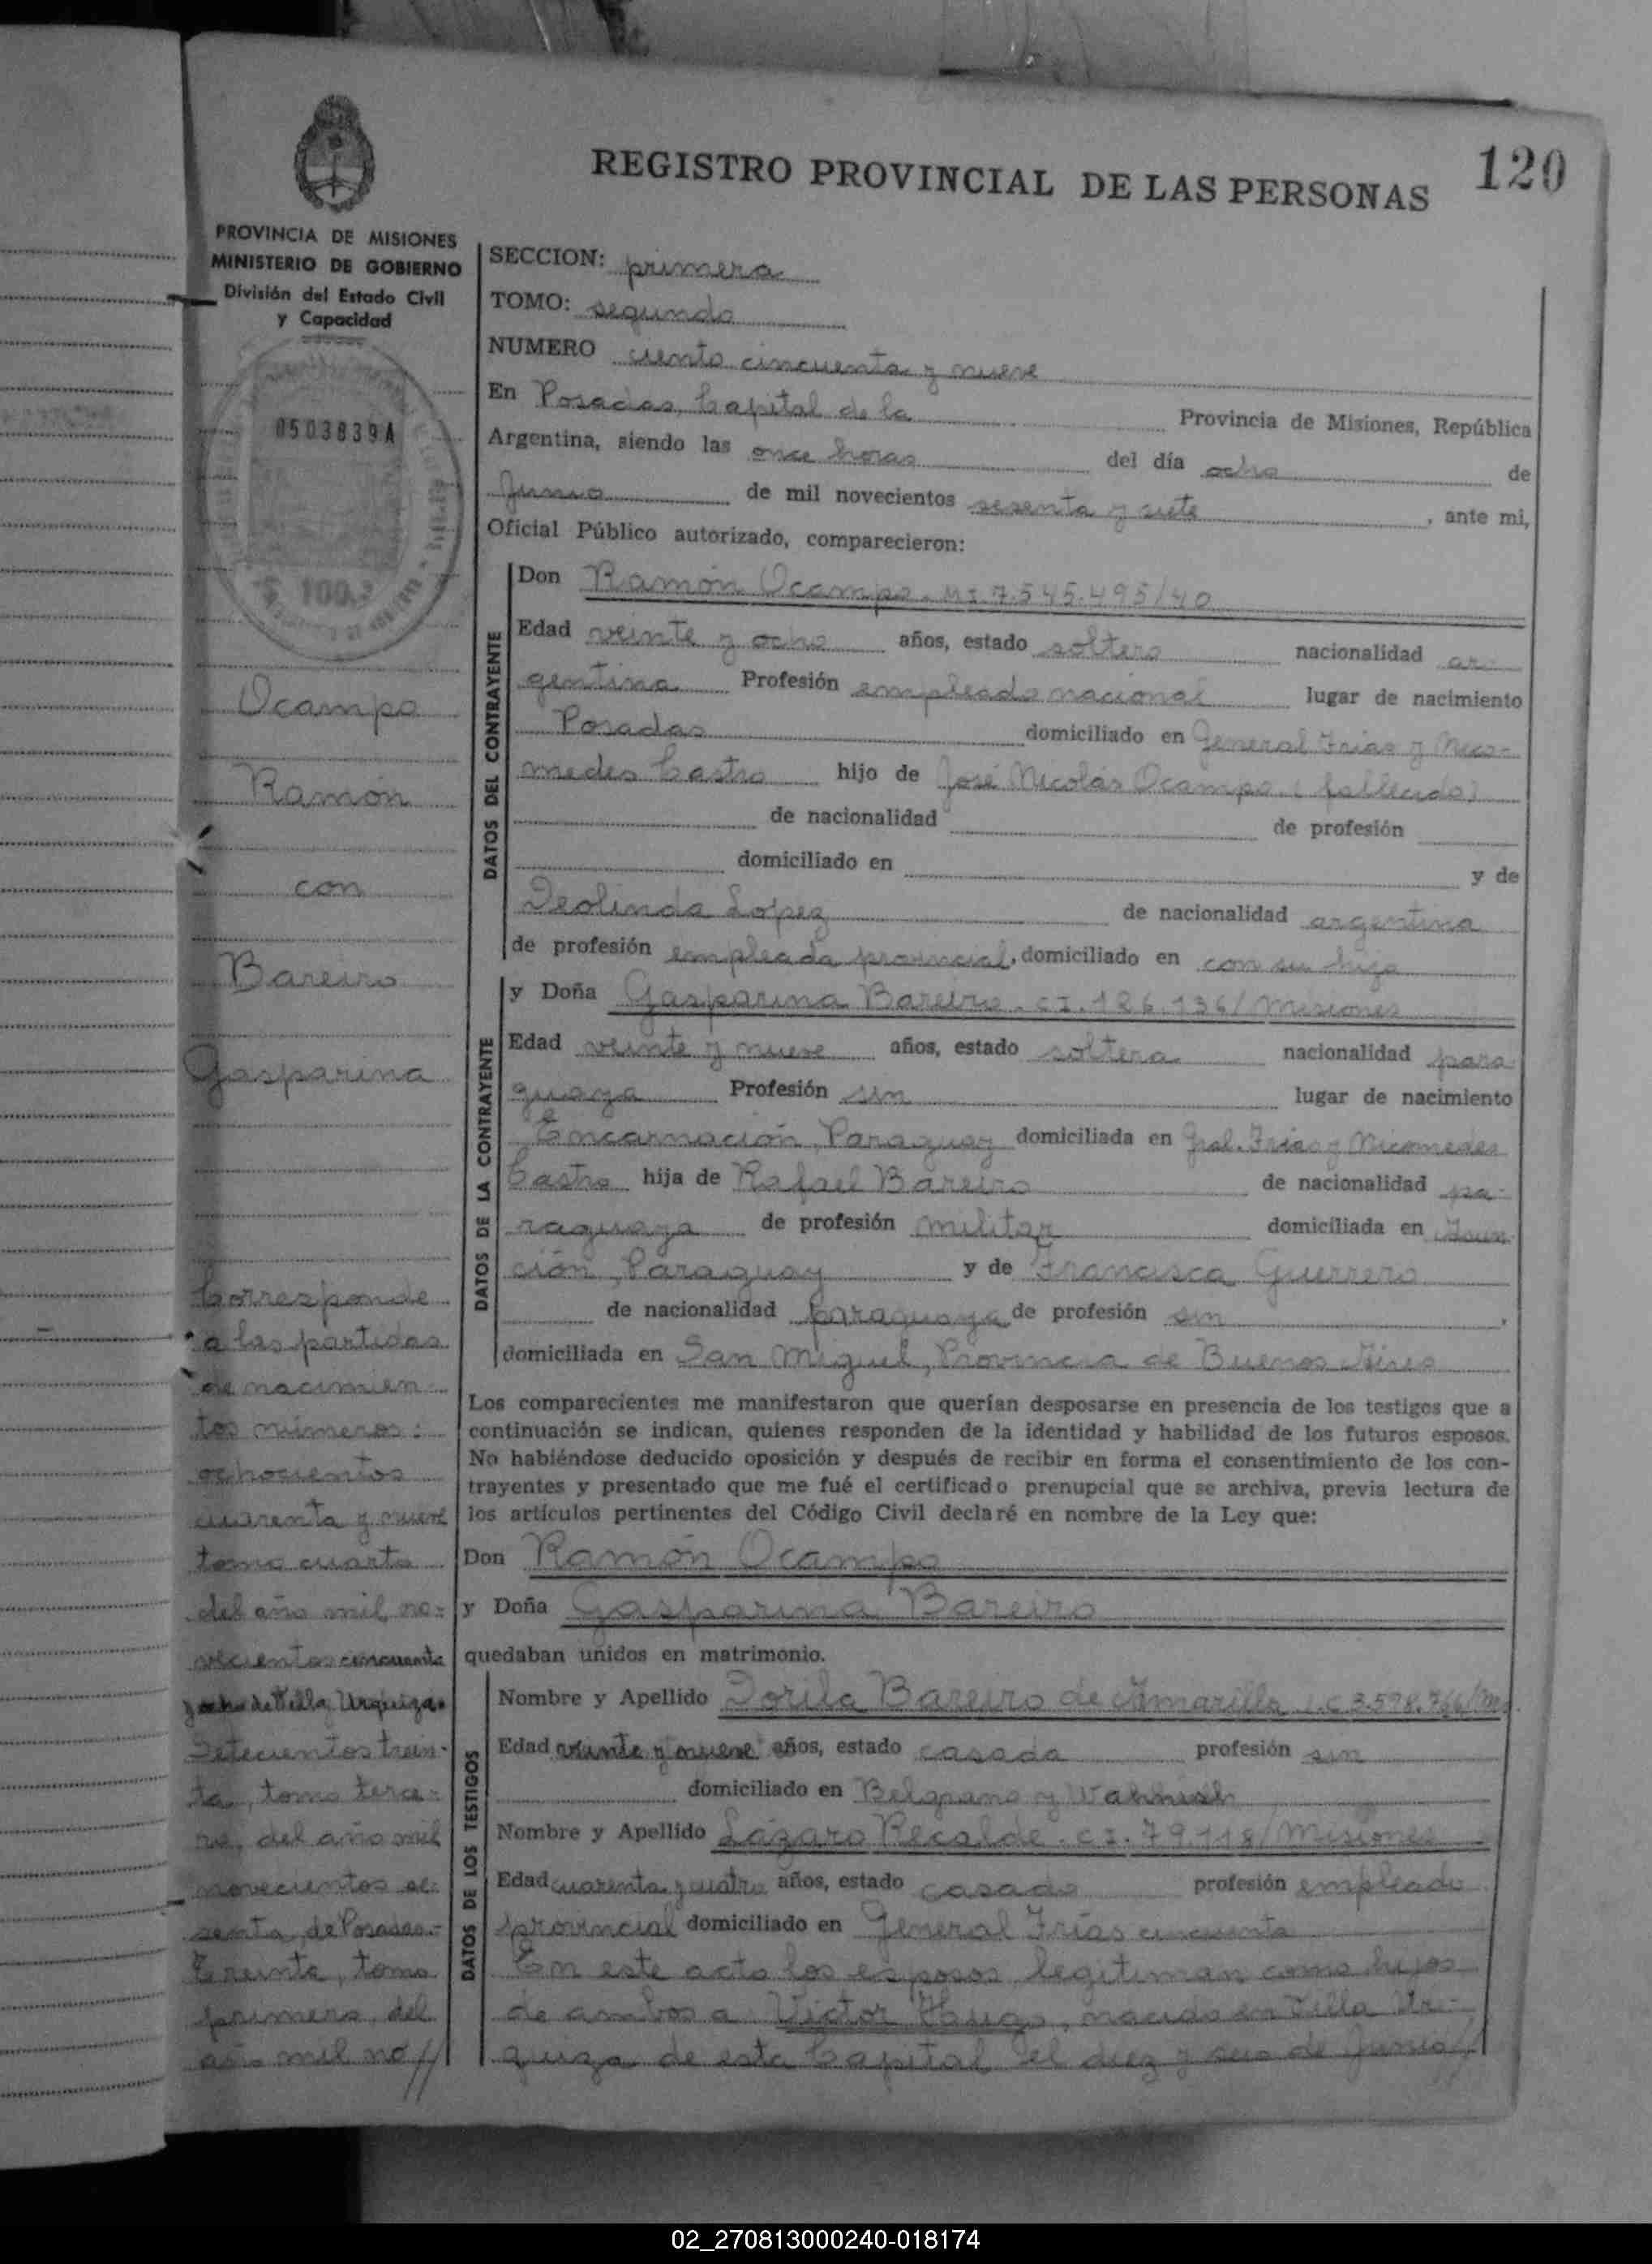 120
REGISTRO PROVINCIAL DE LAS PERSONAS
PROVINCIA DE MISIONES
MINISTERIO DE GOBIERNO
División del Estado Civil
y Capacidad
0503839A
100
Ocampo
Ramón
con
Bareiro
Gasparina
Corresponde
a las partidas
de nacimien
tos números:
ochocientos
cuarenta y nueve
tomo cuarto
del año mil no-
vecientos cincuenta
y ocho de Villa Urquiza.
Setecientos trein-
ta, tomo terce-
ro, del año mil
novecientos se-
senta, de Posadas.-
Treinta, tomo
primero, del
año mil no//
SECCION: primera
TOMO: segundo
NUMERO ciento cincuenta y nueve
En Posadas, Capital de la Provincia de Misiones, República
Argentina, siendo las once horas del día ocho de
Junio de mil novecientos sesenta y siete, ante mi,
Oficial Público autorizado, comparecieron:
DATOS DEL CONTRAYENTE
Don Ramón Ocampo. MI 7.545.495/40
Edad veinte y ocho años, estado soltero nacionalidad ar-
gentina Profesión empleado nacional lugar de nacimiento
Posadas domiciliado en General Frías y Nico-
medes Castro hijo de José Nicolás Ocampo (fallecido)
de nacionalidad de profesión
domiciliado en y de
Deolinda Lopez de nacionalidad argentina
de profesión empleada provincial, domiciliado en con su hijo
DATOS DE LA CONTRAYENTE
y Doña Gasparina Bareiro. CI. 126.136/Misiones
Edad veinte y nueve años, estado soltera nacionalidad para-
guaya Profesión sin lugar de nacimiento
Encarnación, Paraguay domiciliada en Gral. Frías y Nicomedes
Castro hija de Rafael Bareiro de nacionalidad pa-
raguaya de profesión militar domiciliada en Asun-
ción, Paraguay y de Francisca Guerrero
de nacionalidad paraguaya de profesión sin,
domiciliada en San Miguel, Provincia de Buenos Aires
Los comparecientes me manifestaron que querían desposarse en presencia de los testigos que a
continuación se indican, quienes responden de la identidad y habilidad de los futuros esposos.
No habiéndose deducido oposición y después de recibir en forma el consentimiento de los con-
trayentes y presentado que me fué el certificado prenupcial que se archiva, previa lectura de
los artículos pertinentes del Código Civil declaré en nombre de la Ley que:
Don Ramón Ocampo
y Doña Gasparina Bareiro
quedaban unidos en matrimonio.
DATOS DE LOS TESTIGOS
Nombre y Apellido Dorila Bareiro de Amarilla L.C 3.598.766/
Edad veinte y nueve años, estado casada profesión sin
domiciliado en Belgrano y
Nombre y Apellido Lázaro Recalde. CI. 79.118/Misiones
Edad cuarenta y cuatro años, estado casado profesión empleado
provincial domiciliado en General Frías cincuenta
En este acto los esposos legitiman como hijos
de ambos a Victor Hugo, nacido en Villa Ur-
quiza de esta Capital el diez y seis de Junio//
02_270813000240-018174